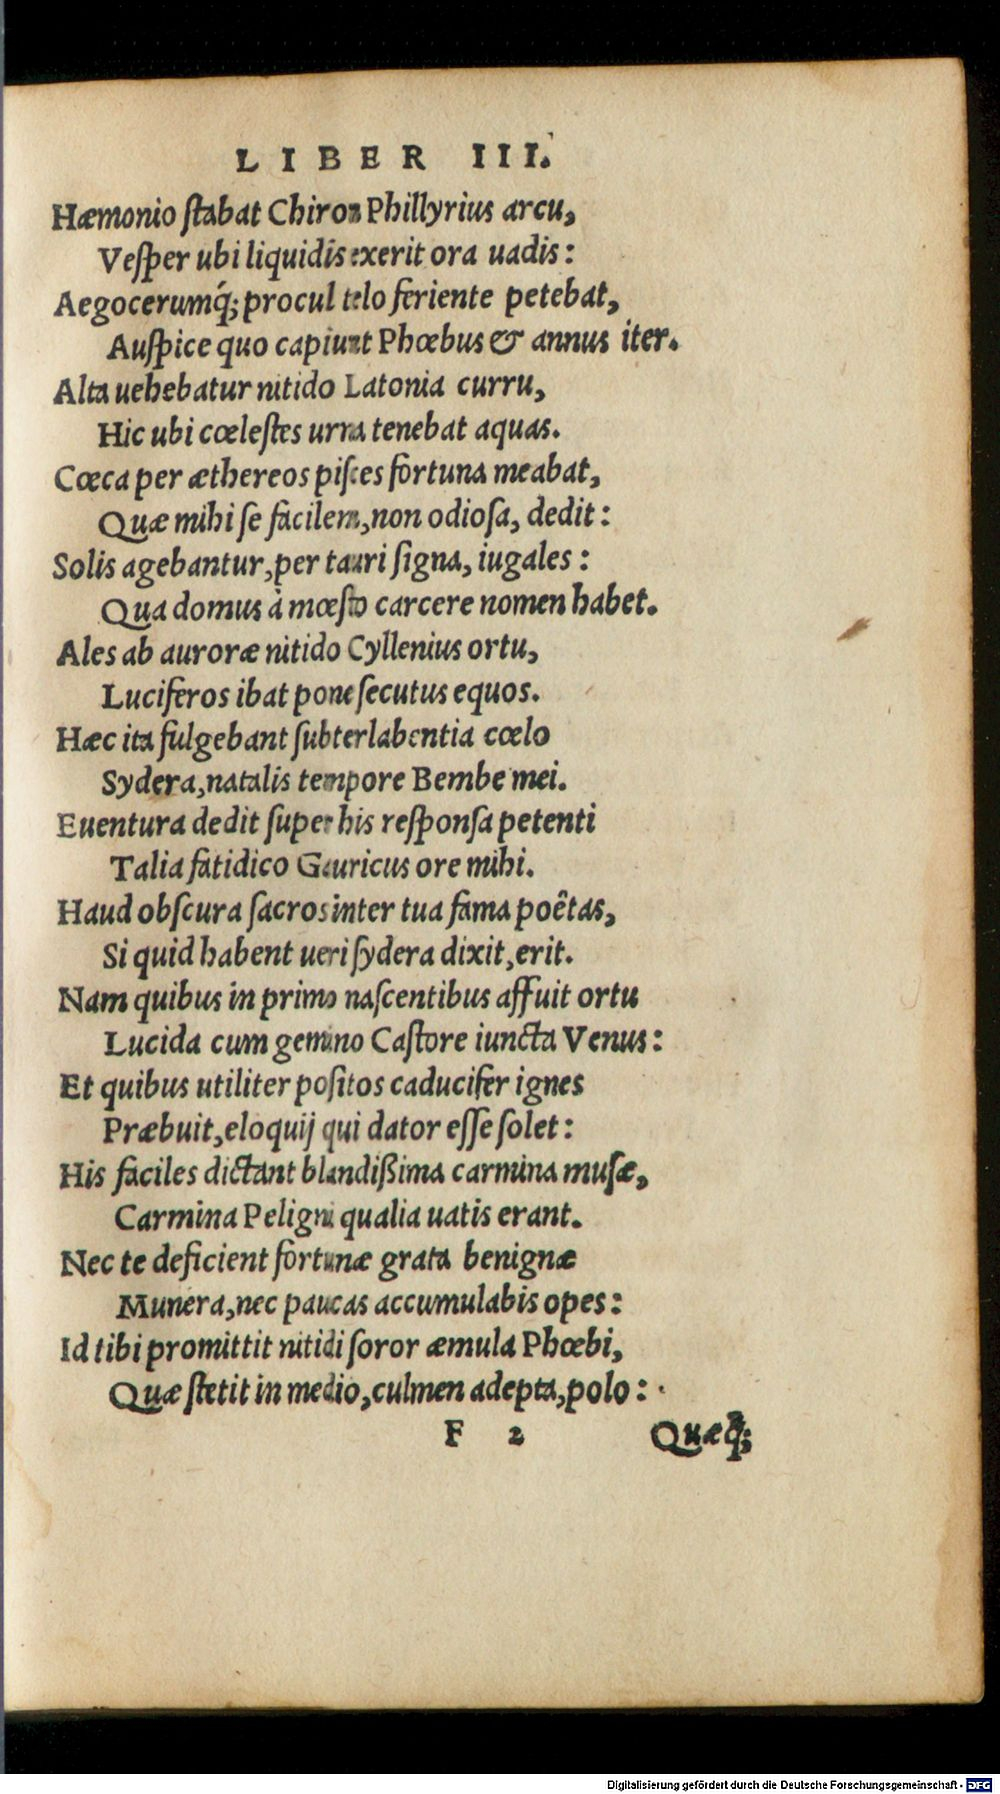 LIBER III.
Hæmonio ſtabat Chiron Phillyrius arcu,
Veſper ubi liquidis exerit ora uadis:
Aegocerumq́; procul telo feriente petebat,
Auſpice quo capiunt Phœbus & annus iter.
Alta uehebatur nitido Latonia curru,
Hic ubi cœleſtes urna tenebat aquas.
Cœca per æthereos piſces fortuna meabat,
Quæ mihi ſe facilem, non odioſa, dedit:
Solis agebantur, per tauri ſigna, iugales:
Qua domus à mœſto carcere nomen habet.
Ales ab auroræ nitido Cyllenius ortu,
Luciferos ibat pone ſecutus equos.
Hæc ita fulgebant ſubterlabentia cœlo
Sydera, natalis tempore Bembe mei.
Euentura dedit ſuper his reſponſa petenti
Talia fatidico Gauricus ore mihi.
Haud obſcura ſacros inter tua fama poêtas,
Si quid habent ueri ſydera dixit, erit.
Nam quibus in primo naſcentibus affuit ortu
Lucida cum gemino Caſtore iuncta Venus:
Et quibus utiliter poſitos caducifer ignes
Præbuit, eloquij qui dator eſſe ſolet:
His faciles dictant blandißima carmina muſæ,
Carmina Peligni qualia uatis erant.
Nec te deficient fortunæ grata benignæ
Munera, nec paucas accumulabis opes:
Id tibi promittit nitidi ſoror æmula Phœbi,
Quæ ſtetit in medio, culmen adepta, polo:
F 2 Quæq́;
Digitalisierung gefördert durch die Deutsche Forschungsgemeinschaft - DFG